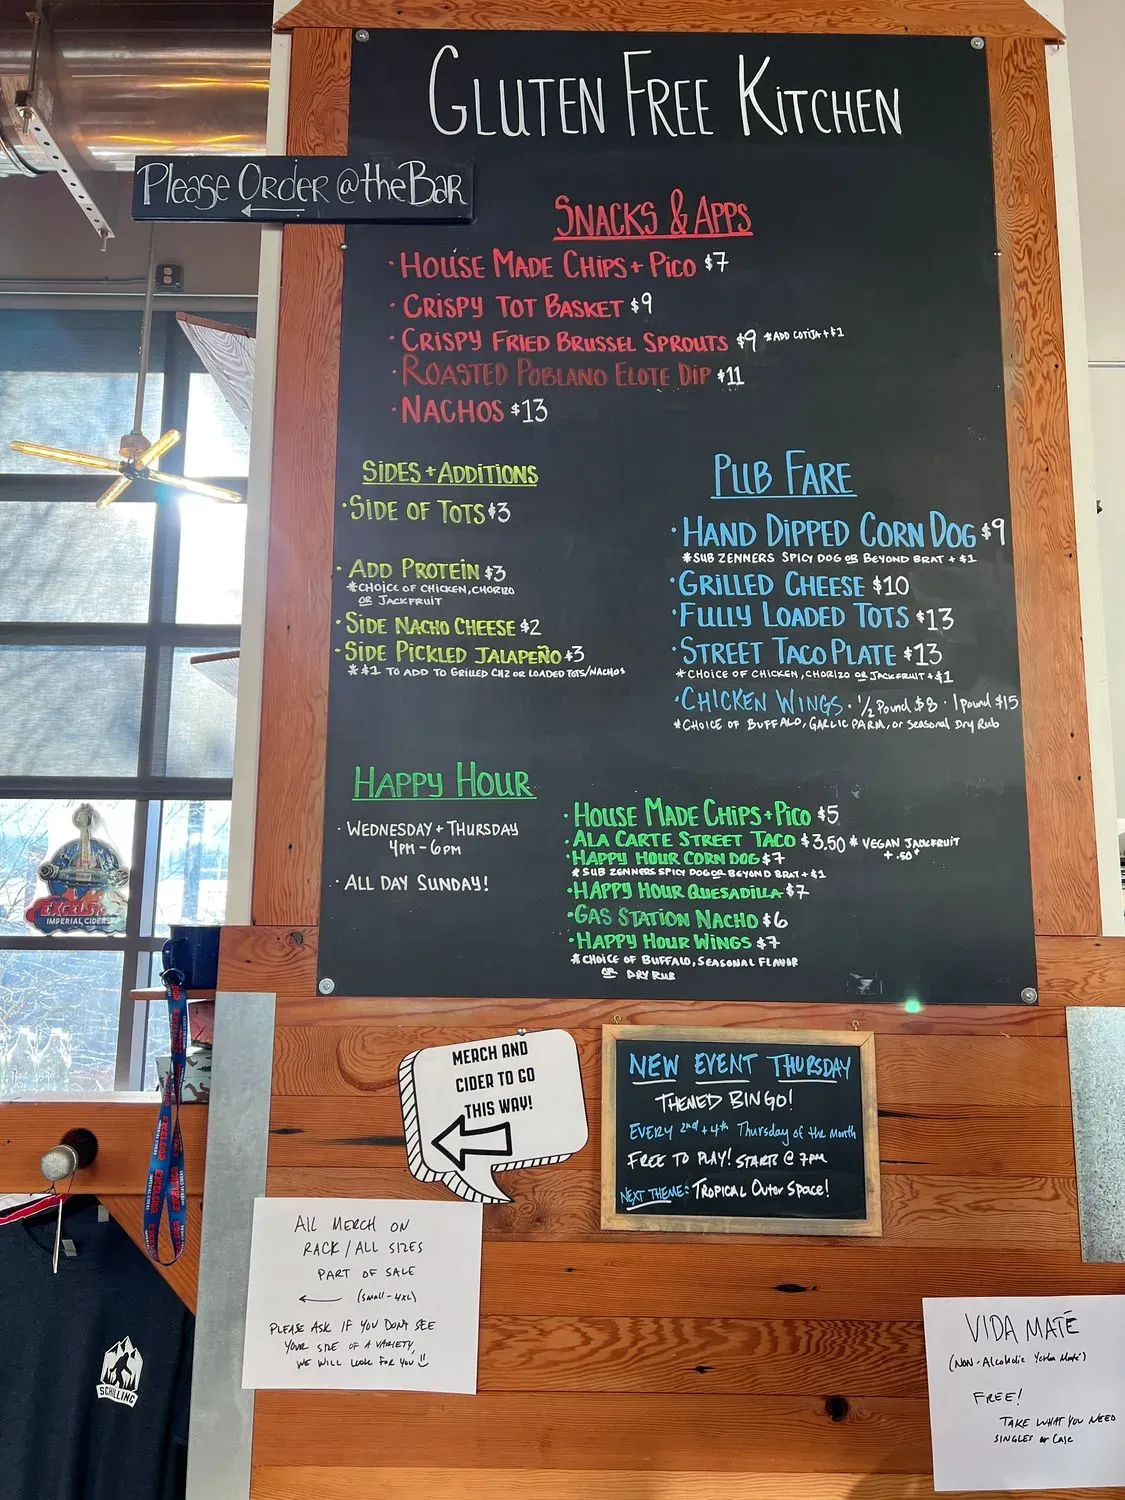 GLUTEN FREE KITCHEN
Please Order @ the Bar
SNACKS & APPS
· HOUSE MADE CHIPS + PICO $7
· CRISPY TOT BASKET $9
· CRISPY FRIED BRUSSEL SPROUTS $9 *ADD COTIJA + $1
· ROASTED POBLANO ELOTE DIP $11
· NACHOS $13
SIDES + ADDITIONS
· SIDE OF TOTS $3
· ADD PROTEIN $3
*CHOICE OF CHICKEN, CHORIZO
OR JACKFRUIT
· SIDE NACHO CHEESE $2
· SIDE PICKLED JALAPEÑO $3
*$1 TO ADD TO GRILLED CHZ OR LOADED TOTS/NACHOS
PUB FARE
· HAND DIPPED CORN DOG $9
*SUB ZENNERS SPICY DOG OR BEYOND BRAT + $1
· GRILLED CHEESE $10
· FULLY LOADED TOTS $13
· STREET TACO PLATE $13
*CHOICE OF CHICKEN, CHORIZO OR JACKFRUIT + $1
· CHICKEN WINGS · 1/2 Pound $8 · 1 pound $15
*CHOICE OF BUFFALO, GARLIC PARM, or Seasonal Dry Rub
HAPPY HOUR
· WEDNESDAY + THURSDAY
4PM - 6PM
· ALL DAY SUNDAY!
· HOUSE MADE CHIPS + PICO $5
· ALA CARTE STREET TACO $3.50 * VEGAN JACKFRUIT
+ .50¢
· HAPPY HOUR CORN DOG $7
*SUB ZENNERS SPICY DOG OR BEYOND BRAT + $1
· HAPPY HOUR QUESADILLA $7
· GAS STATION NACHO $6
· HAPPY HOUR WINGS $7
*CHOICE OF BUFFALO, SEASONAL FLAVOR
OR DRY RUB
IMPERIAL CIDER
MERCH AND
CIDER TO GO
THIS WAY!
NEW EVENT THURSDAY
THEMED BINGO!
EVERY 2nd + 4th Thursday of the Month
FREE TO PLAY! STARTS @ 7PM
NEXT THEME: TROPICAL Outer Space!
All MERCH ON
RACK / ALL SIZES
PART OF SALE
(small - 4XL)
PLEASE ASK IF YOU DON'T SEE
YOUR SIZE OF A VARIETY,
WE WILL LOOK FOR YOU
SCHILLING
VIDA MATÉ
(NON-Alcoholic Yerba Maté)
FREE!
TAKE WHAT YOU NEED
SINGLES or Case